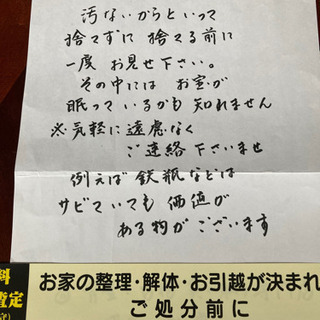 汚ないからといって
捨てずに捨てる前に
一度お見せ下さい。
その中にはお宝が
眠っているかも知れません
※気軽に遠慮なく
ご連絡下さいませ
例えば鉄瓶などは
サビていても価値が
ある物がございます
料
査定
お家の整理・解体・お引越が決まれ
ご処分前に